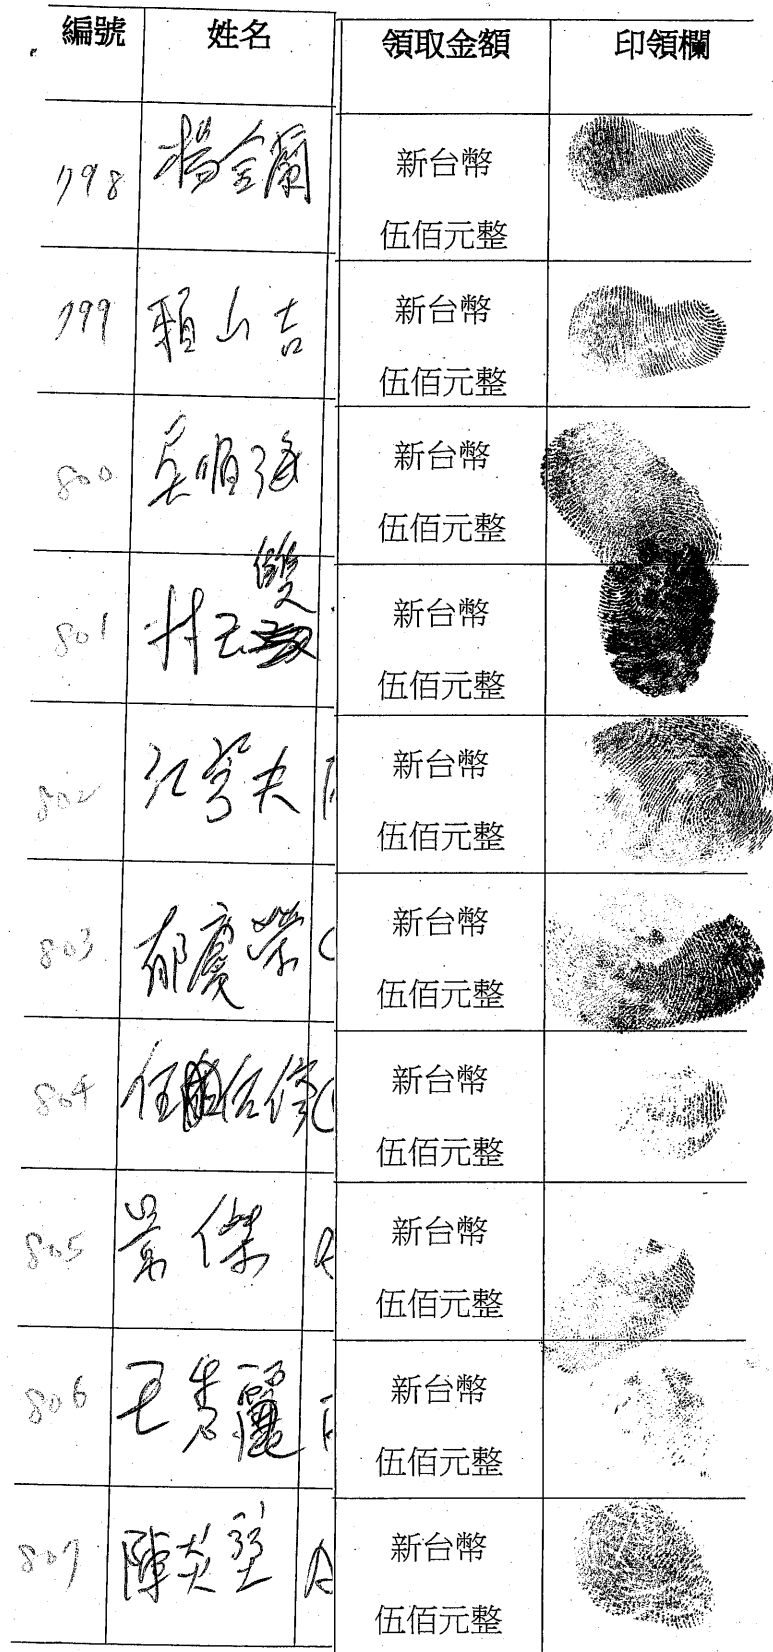 編號 姓名 領取金額 印領欄
798 楊金蘭 新台幣
伍佰元整
799 賴山吉 新台幣
伍佰元整
800 吳順強 新台幣
伍佰元整
801 林玉雙 新台幣
伍佰元整
802 江 夫 新台幣
伍佰元整
803 郁慶榮 新台幣
伍佰元整
804 任 新台幣
伍佰元整
805 常傑 新台幣
伍佰元整
806 王秀麗 新台幣
伍佰元整
807 陳炎 新台幣
伍佰元整